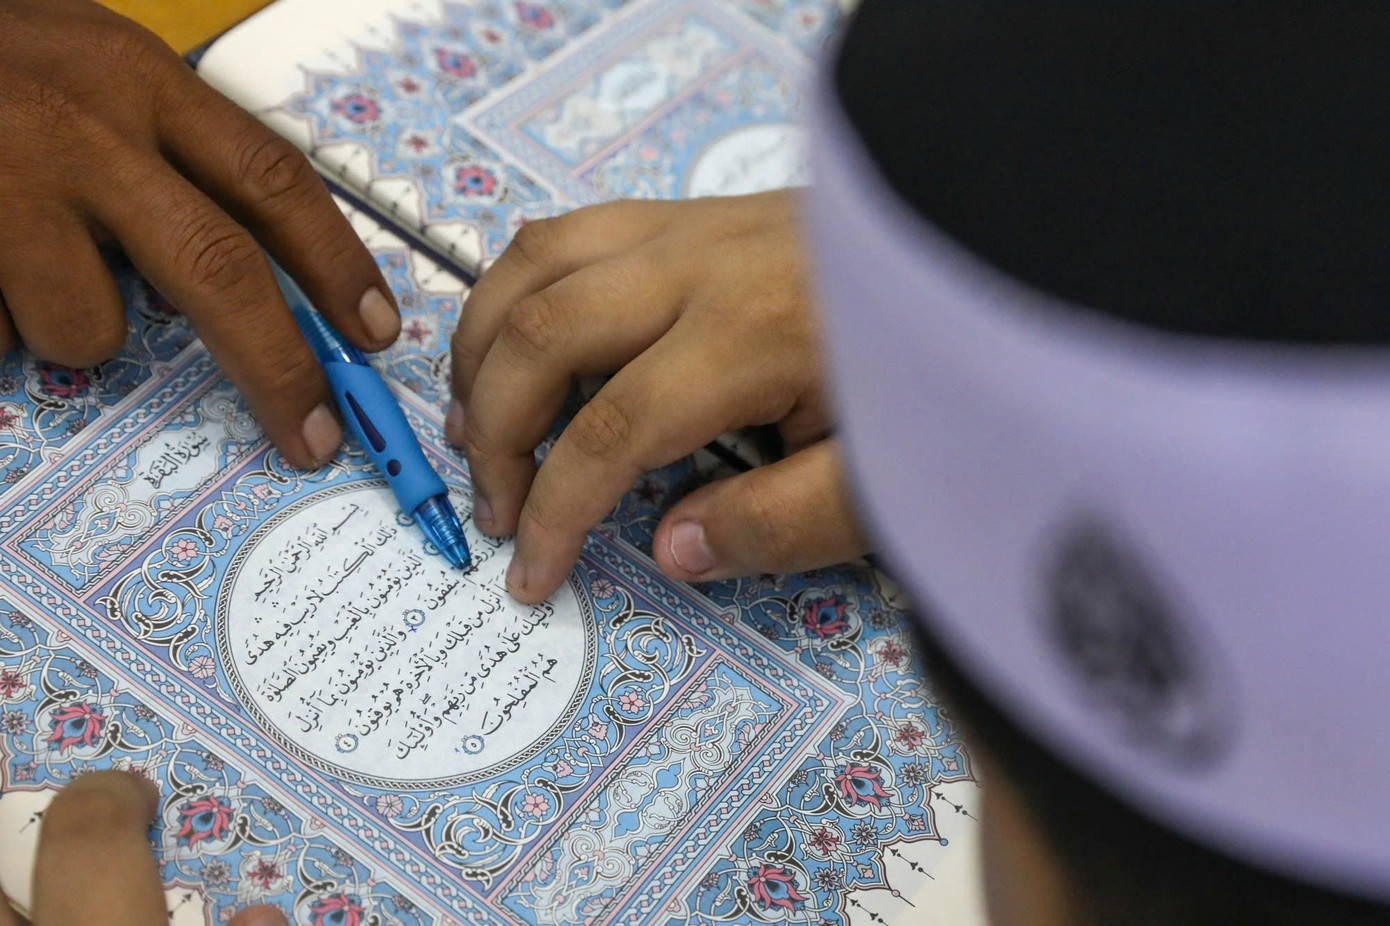 سُورَةُ البَقَرَةِ
بِسْمِ اللَّهِ الرَّحْمَٰنِ الرَّحِيمِ
ذَٰلِكَ الْكِتَابُ لَا رَيْبَ فِيهِ هُدًى
الَّذِينَ يُؤْمِنُونَ بِالْغَيْبِ وَيُقِيمُونَ الصَّلَاةَ
يُنفِقُونَ ٣ وَالَّذِينَ يُؤْمِنُونَ بِمَا أُنزِلَ
مِن قَبْلِكَ وَبِالْآخِرَةِ هُمْ يُوقِنُونَ ٤
أُولَٰئِكَ عَلَىٰ هُدًى مِّن رَّبِّهِمْ وَأُولَٰئِكَ
هُمُ الْمُفْلِحُونَ ٥